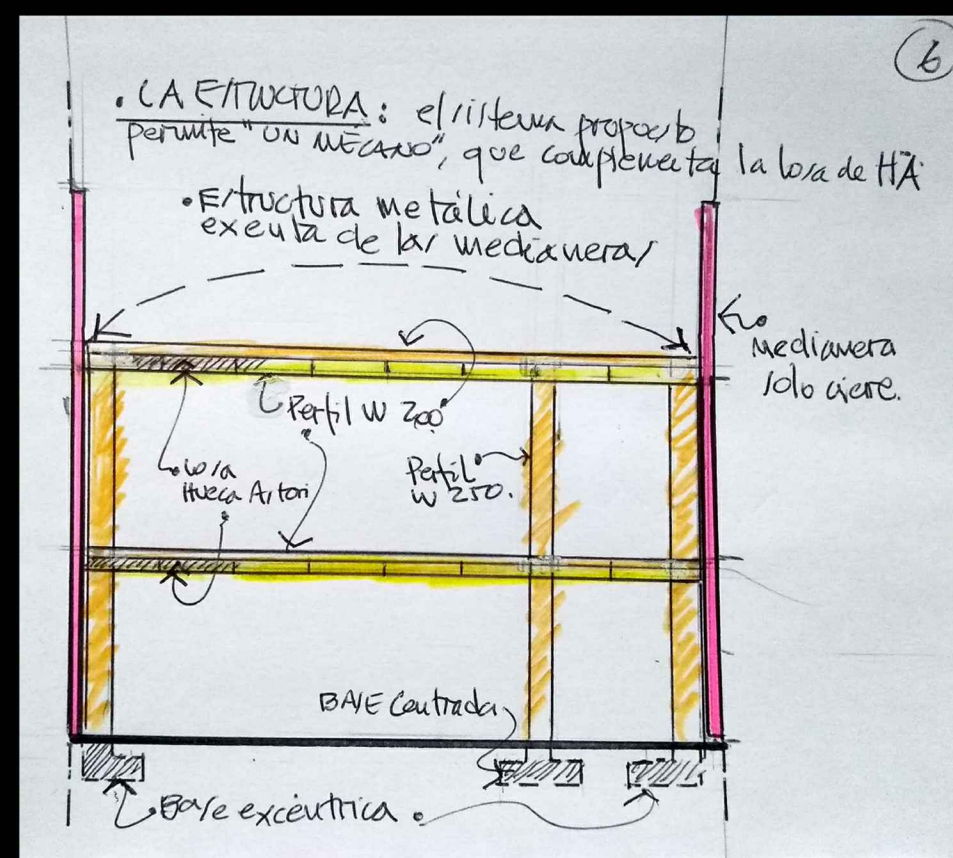 6
. LA ESTRUCTURA: el sistema propuesto
permite "UN MECANO", que complementa la losa de HA
• Estructura metálica
exenta de las medianeras
Medianera
solo cierre.
Perfil W 200
Losa
Hueca Artori
Perfil
W 250.
BASE Centrada
Base excéntrica